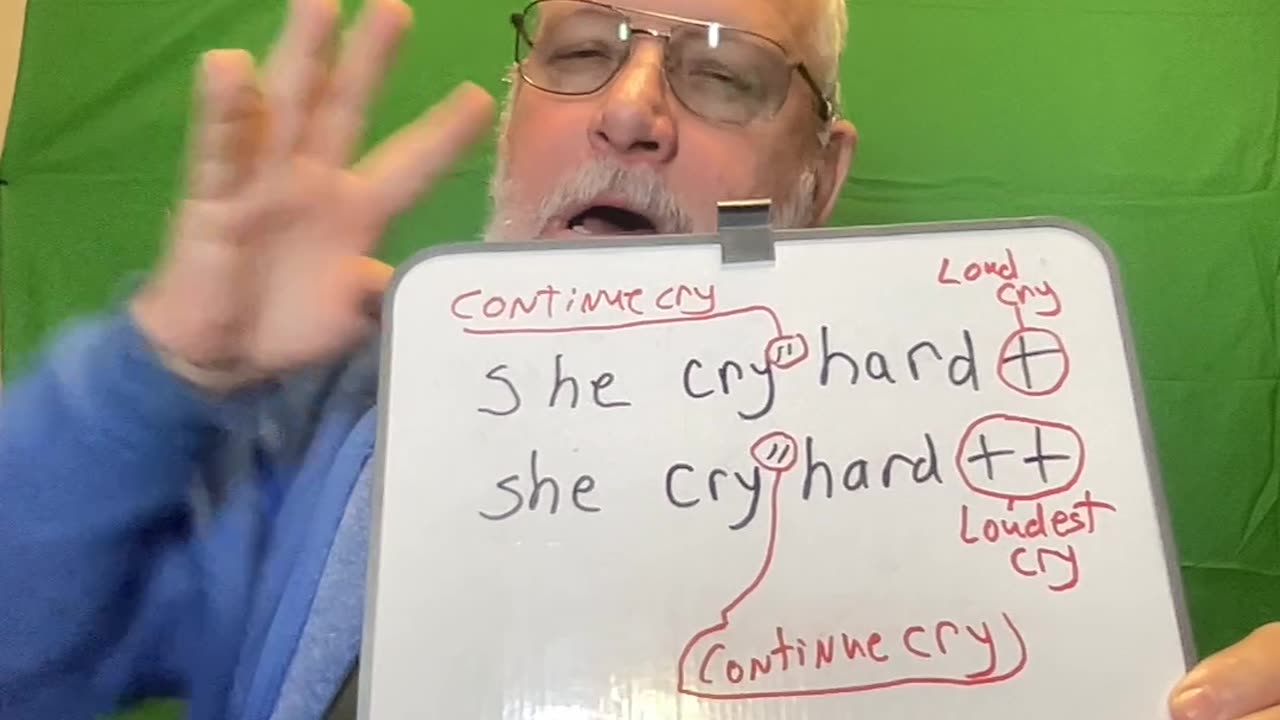 Loud
cry
Continue cry
She cry" hard +
she cry" hard ++
Loudest
cry
Continue cry